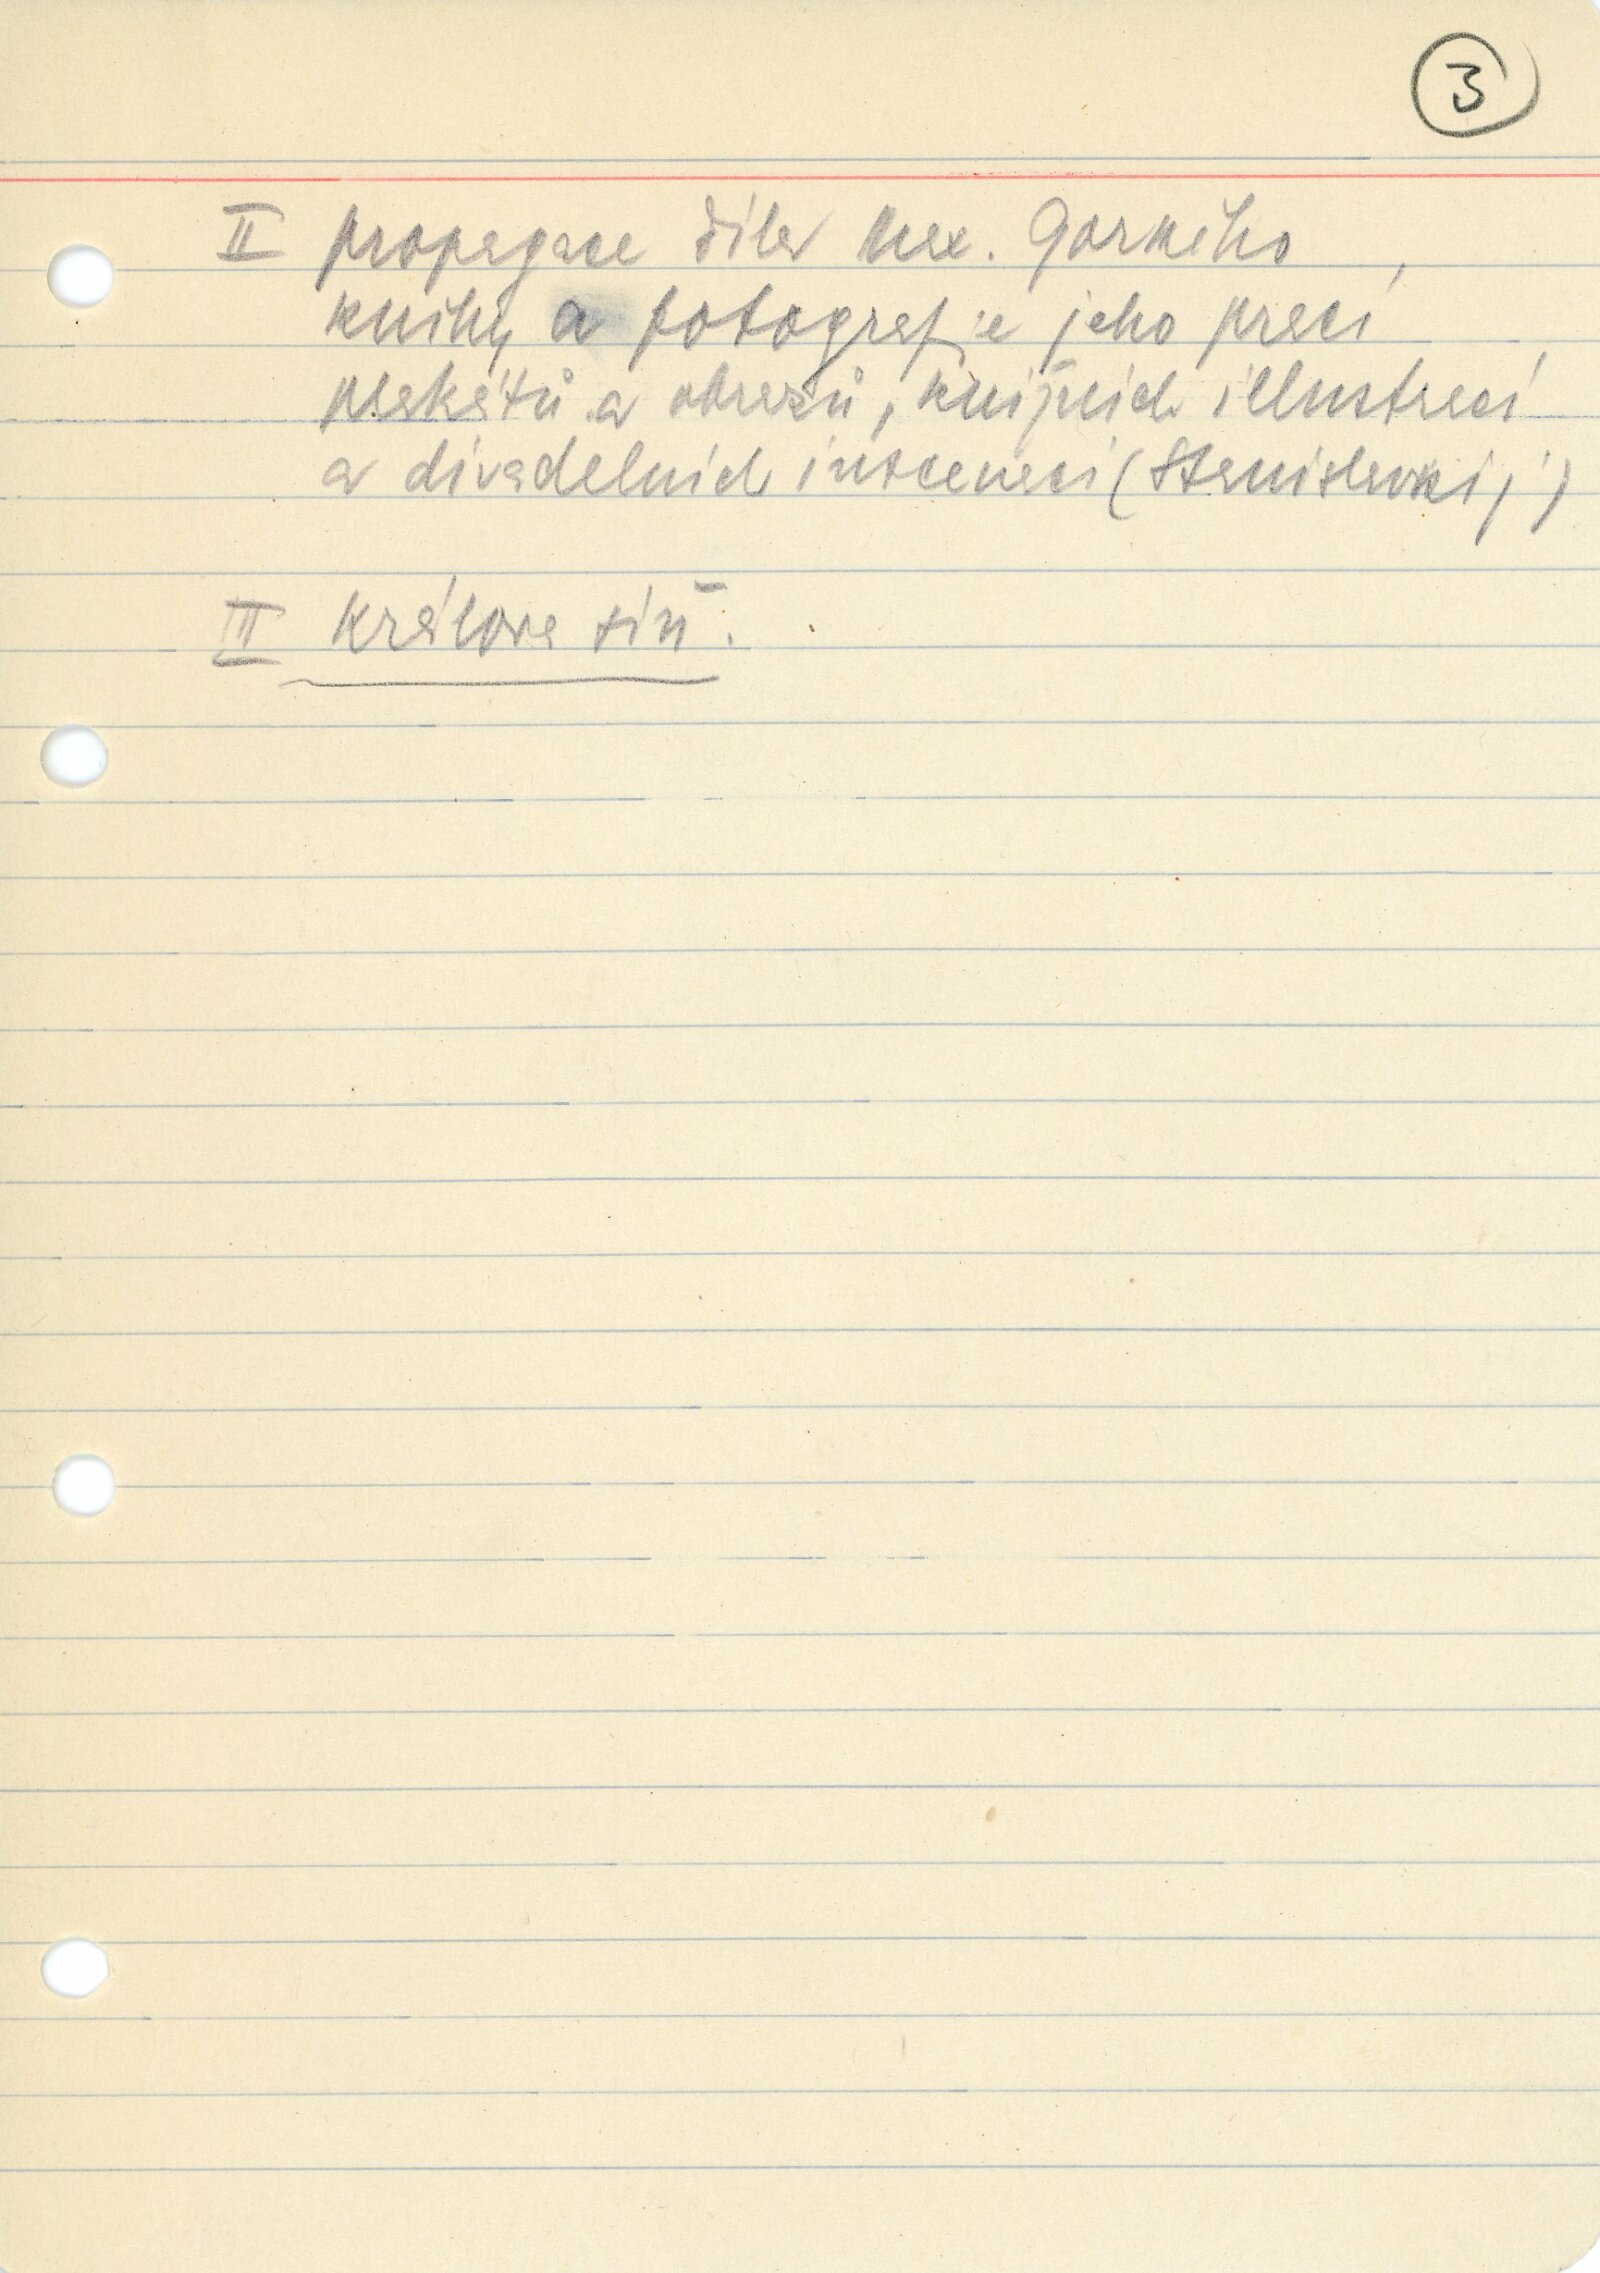 3
II propagace díla Max. Gorkého,
knihy a fotografie jeho prací,
plakátů a obrazů, knižních illustrací
a divadelních inscenací (Stanislavskij)
III Králova síň.